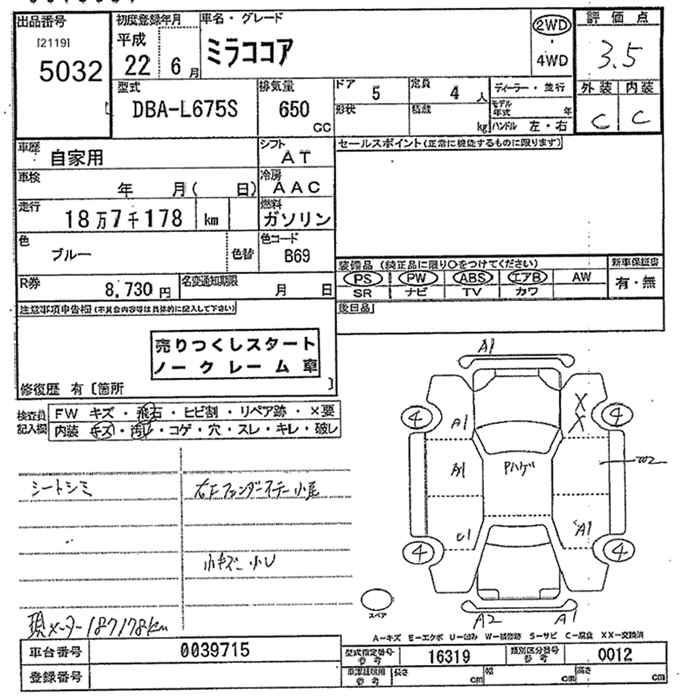 出品番号
[2119]
5032
初度登録年月
平成
22 6月
車名・グレード
ミラココア
2WD
・
4WD
評価点
3.5
型式
DBA-L675S
排気量
650
CC
ドア 5
定員 4人
形状
積載 kg
ディーラー・並行
モデル年式 年
ハンドル 左・右
外装 内装
C C
車歴
自家用
シフト
AT
車検
年 月( 日)
冷房
AAC
走行
18万7千178 km
燃料
ガソリン
色
ブルー
色替
色コード
B69
R券
8,730円
名変通知期限
月 日
セールスポイント(正常に機能するものに限ります)
装備品 (純正品に限り○をつけてください)
PS PW ABS エアB AW
SR ナビ TV カワ
新車保証書
有・無
後日品
注意事項申告欄(不具合内容等は具体的に記入して下さい)
売りつくしスタート
ノークレーム車
修復歴 有〔箇所 〕
検査員記入欄
FW キズ・飛石・ヒビ割・リペア跡・×要
内装 キズ・汚れ・コゲ・穴・スレ・キレ・破し
シートシミ
小キズ 小U
現メーター187178km
A1
4
A1
X
X
4
A1
Pハゲ
W2
U1
A1
4
4
スペア
A2
A1
A-キズ E-エクボ U-凹み W-補修跡 S-サビ C-腐食 XX-交換済
車台番号
0039715
登録番号
型式指定番号
参考
16319
類別区分番号
参考
0012
長さ cm
幅 cm
高さ cm